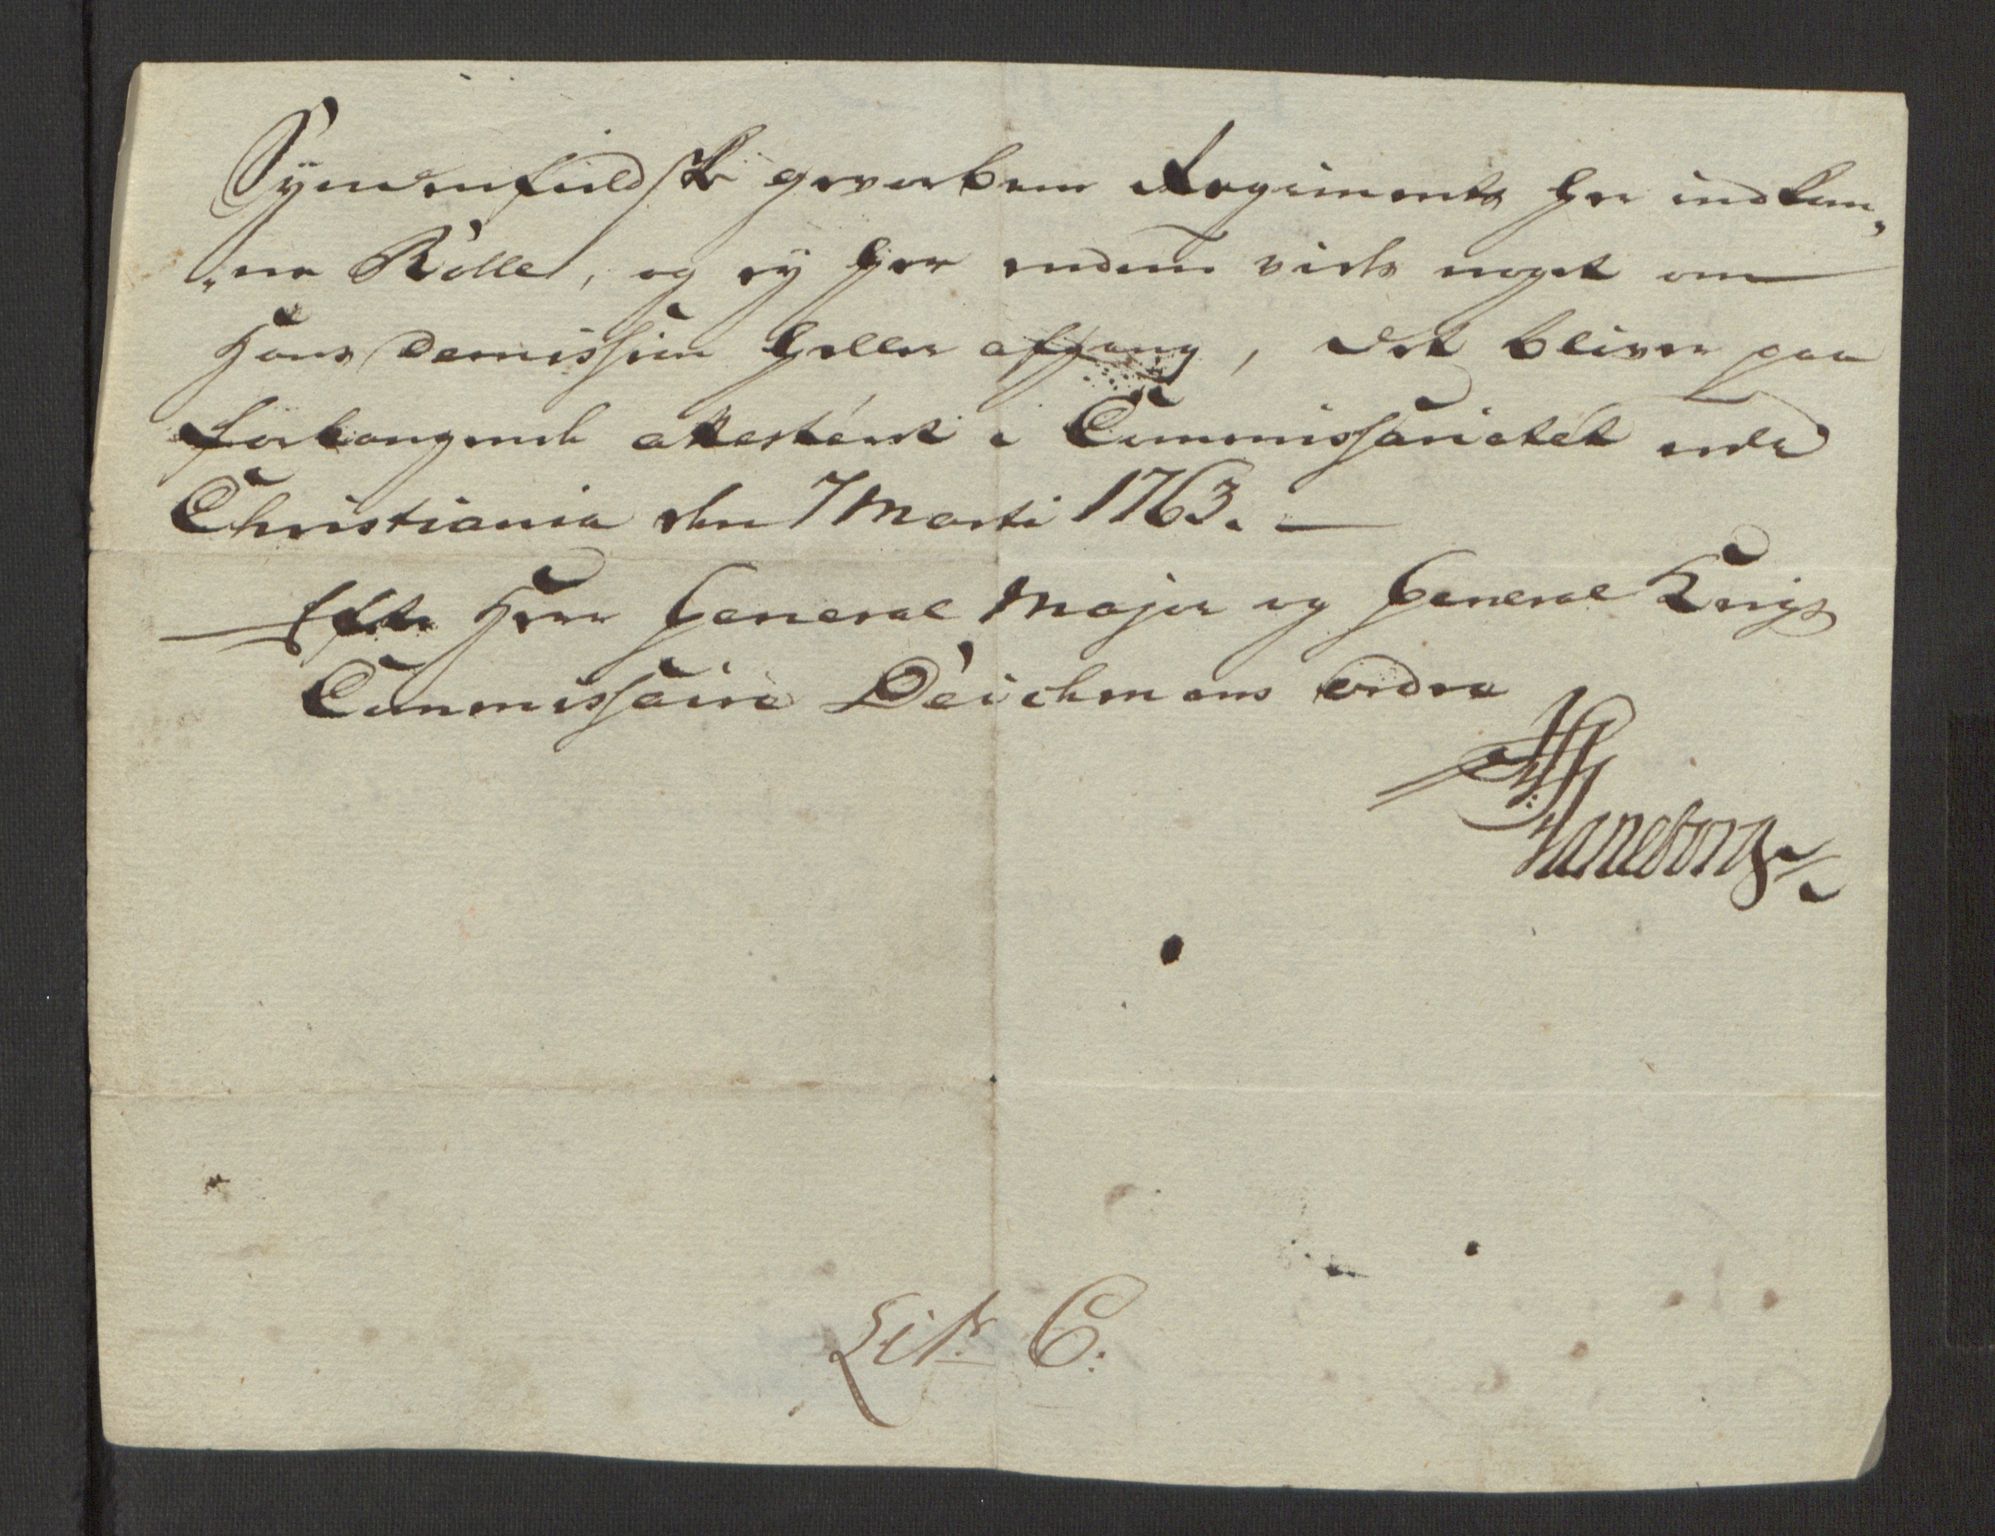 Syndenfieldske geworbene Regiments her indkom„
„ne Rolle, og ey her enden vides noget om
Hans Demission heller afgang, det bliver paa
forlangende attesteret i Commissariatet
Christiania den 7 Marti 1763. —
Efter Herr General Major og General Krigs
Commissaire Deichmans ordre
Haneborg
Litr. C.